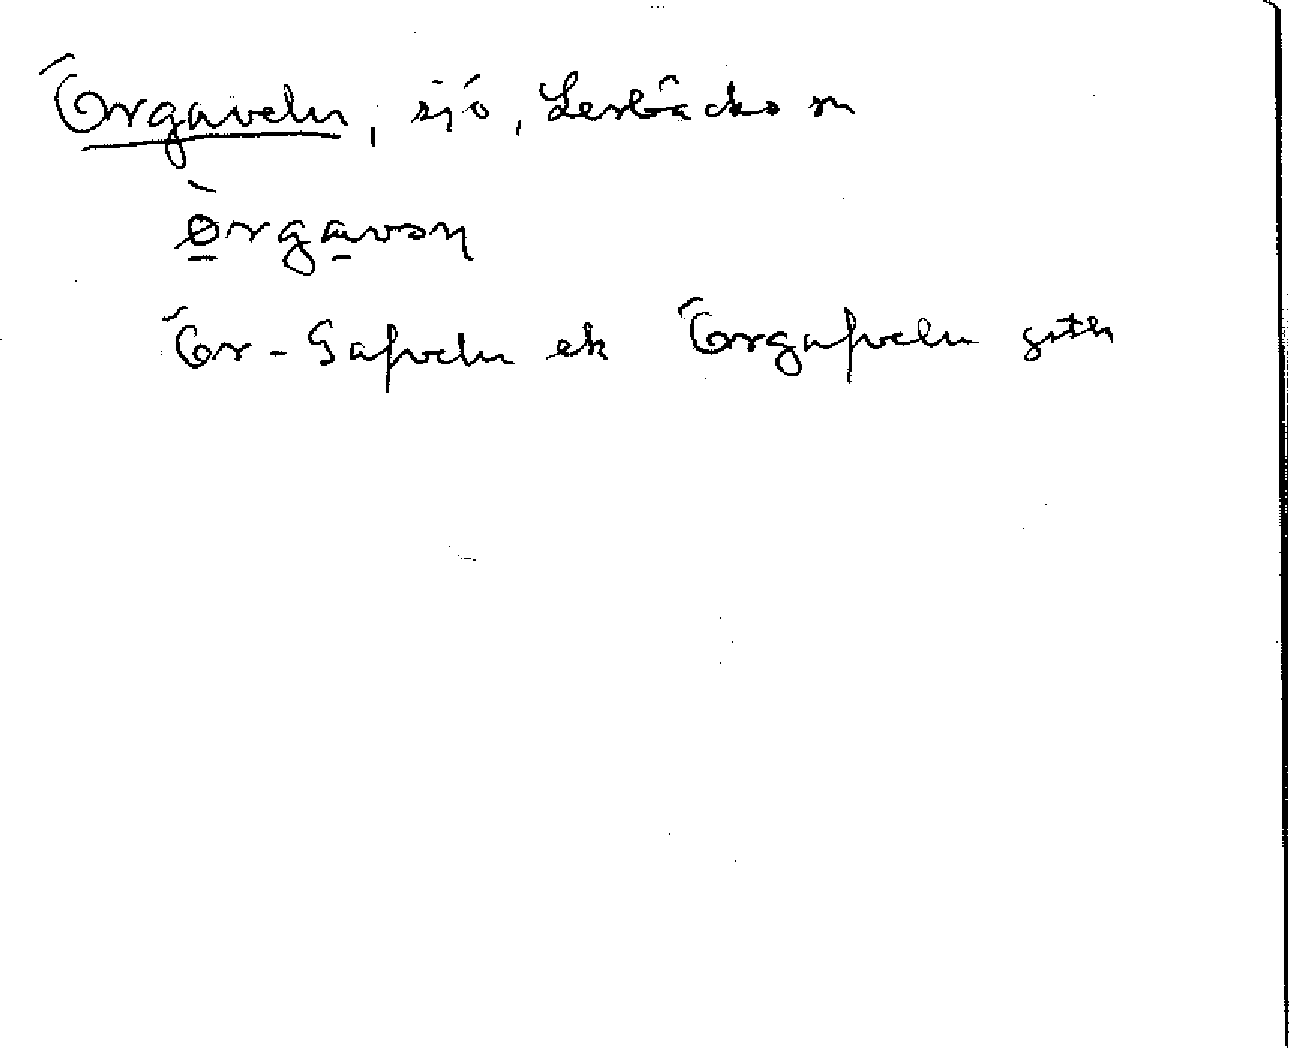 Örgaveln, sjö, Lerbäcks sn
ørgavən
Ör-Gafveln ek Örgafveln gstk